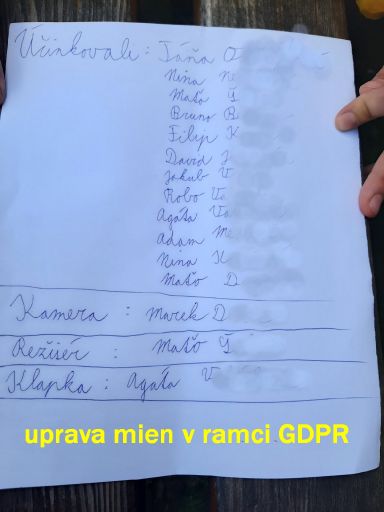 Účinkovali : Táňa O
Nina N
Maťo Š
Bruno B
Filip K
David J
Jakub V
Robo Va
Agáta Va
Adam Me
Nina K
Maťo D
Kamera : Marek D
Režisér : Maťo Š
Klapka : Agáta V
uprava mien v ramci GDPR